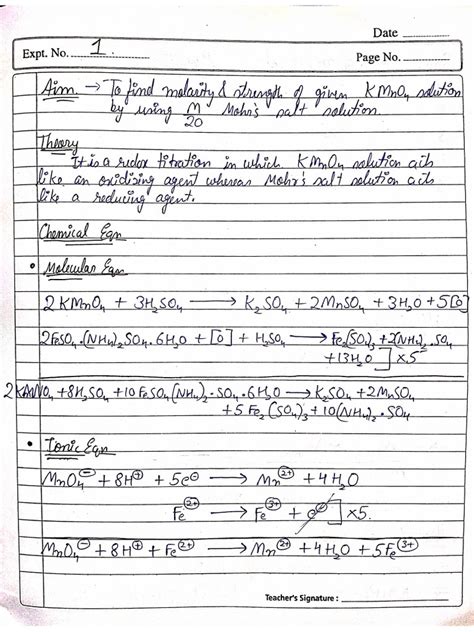 Date
Expt. No. 1.
Page No.
Aim → To find molarity & strength of given KMnO₄ solution
by using M/20 Mohr's salt solution.
Theory
It is a redox titration in which KMnO₄ solution acts
like an oxidising agent whereas Mohr's salt solution acts
like a reducing agent.
Chemical Eqn
• Molecular Eqn
2KMnO₄ + 3H₂SO₄ ⟶ K₂SO₄ + 2MnSO₄ + 3H₂O + 5[O]
2FeSO₄.(NH₄)₂SO₄.6H₂O + [O] + H₂SO₄ ⟶ Fe₂(SO₄)₃ + 2(NH₄)₂.SO₄
+13H₂O ] x5
2KMNO₄ + 8H₂SO₄ + 10FeSO₄(NH₄)₂.SO₄.6H₂O ⟶ K₂SO₄ + 2MnSO₄
+ 5Fe₂(SO₄)₃ + 10(NH₄)₂.SO₄
• Ionic Eqn
MnO₄⁻ + 8H⁺ + 5e⁻ ⟶ Mn²⁺ + 4H₂O
Fe²⁺ ⟶ Fe³⁺ + e⁻ ] x5.
MnO₄⁻ + 8H⁺ + Fe²⁺ ⟶ Mn²⁺ + 4H₂O + 5Fe³⁺
Teacher's Signature :